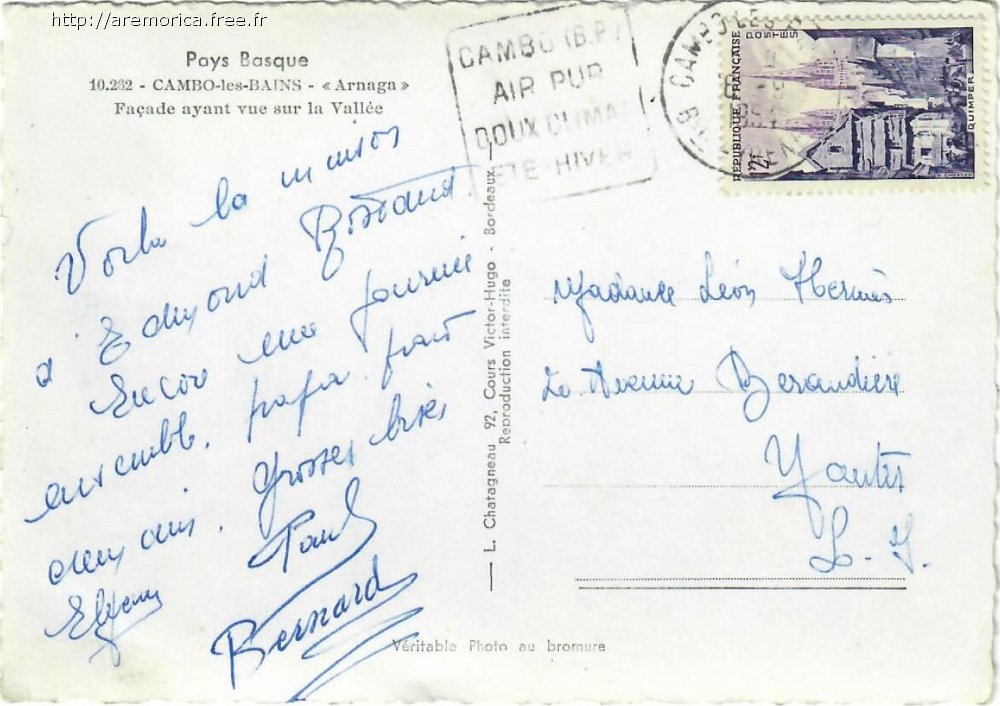 http://aremorica.free.fr
Pays Basque
10.262 - CAMBO-les-BAINS - « Arnaga »
Façade ayant vue sur la Vallée
CAMBO (B.P)
AIR PUR
DOUX CLIMA
ETE-HIVER
CAMBO-LES
1954
RÉPUBLIQUE FRANÇAISE
POSTES
12F
QUIMPER
Voila la maison
d'Edmond Rostand
Encore une journée
ensemble, papa part
demain. Grosses bises
Paul
Bernard
L. Chatagneau 92, Cours Victor-Hugo - Bordeaux
Reproduction interdite
Madame Léon
Avenue
Nantes
L-I.
Véritable Photo au bromure